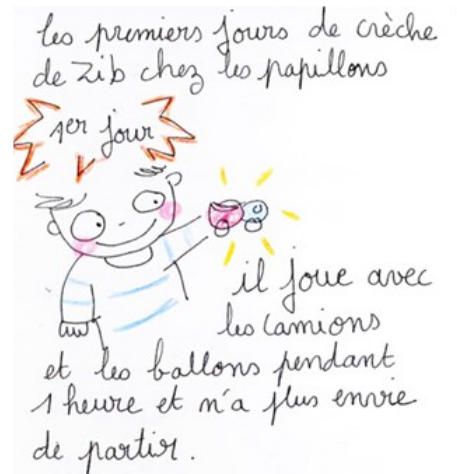 les premiers jours de crèche
de Zib chez les papillons
1er jour
il joue avec
les camions
et les ballons pendant
1 heure et n'a plus envie
de partir.